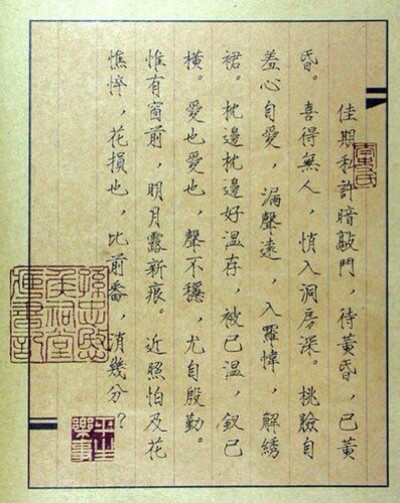 佳期私許暗敲門，待黃昏，已黃
昏。喜得無人，悄入洞房深。桃臉自
羞心自愛，漏聲遠，入羅幃，解綉
裙。枕邊枕邊好溫存，被已溫，釵已
橫。愛也愛也，聲不穩，尤自殷勤。
惟有窗前，明月露新痕。近照怕及花
憔悴，花損也，比前番，消幾分？
平生樂事